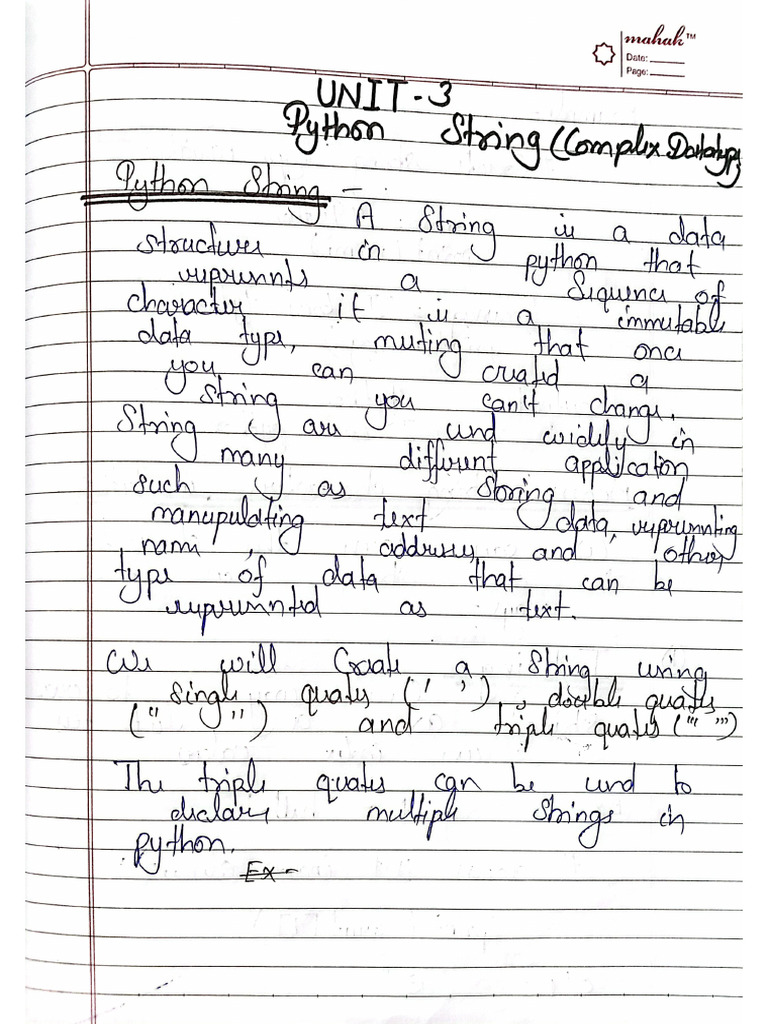 mahak™
Date:
Page:
UNIT-3
Python String (Complex Datatype
Python String -
A String is a data
structures in python that
represents a Sequence of
character it is a immutable
data type, muting that once
you can created a
string you can't change.
String are used widely in
many different application
such as Storing and
manupulating text data, representing
name, address, and other
type of data that can be
represented as text.
We will Create a string using
single quates (' '), double quates
(" ") and triple quates (''' ''')
The triple quates can be used to
declare multiple strings in
python.
Ex-